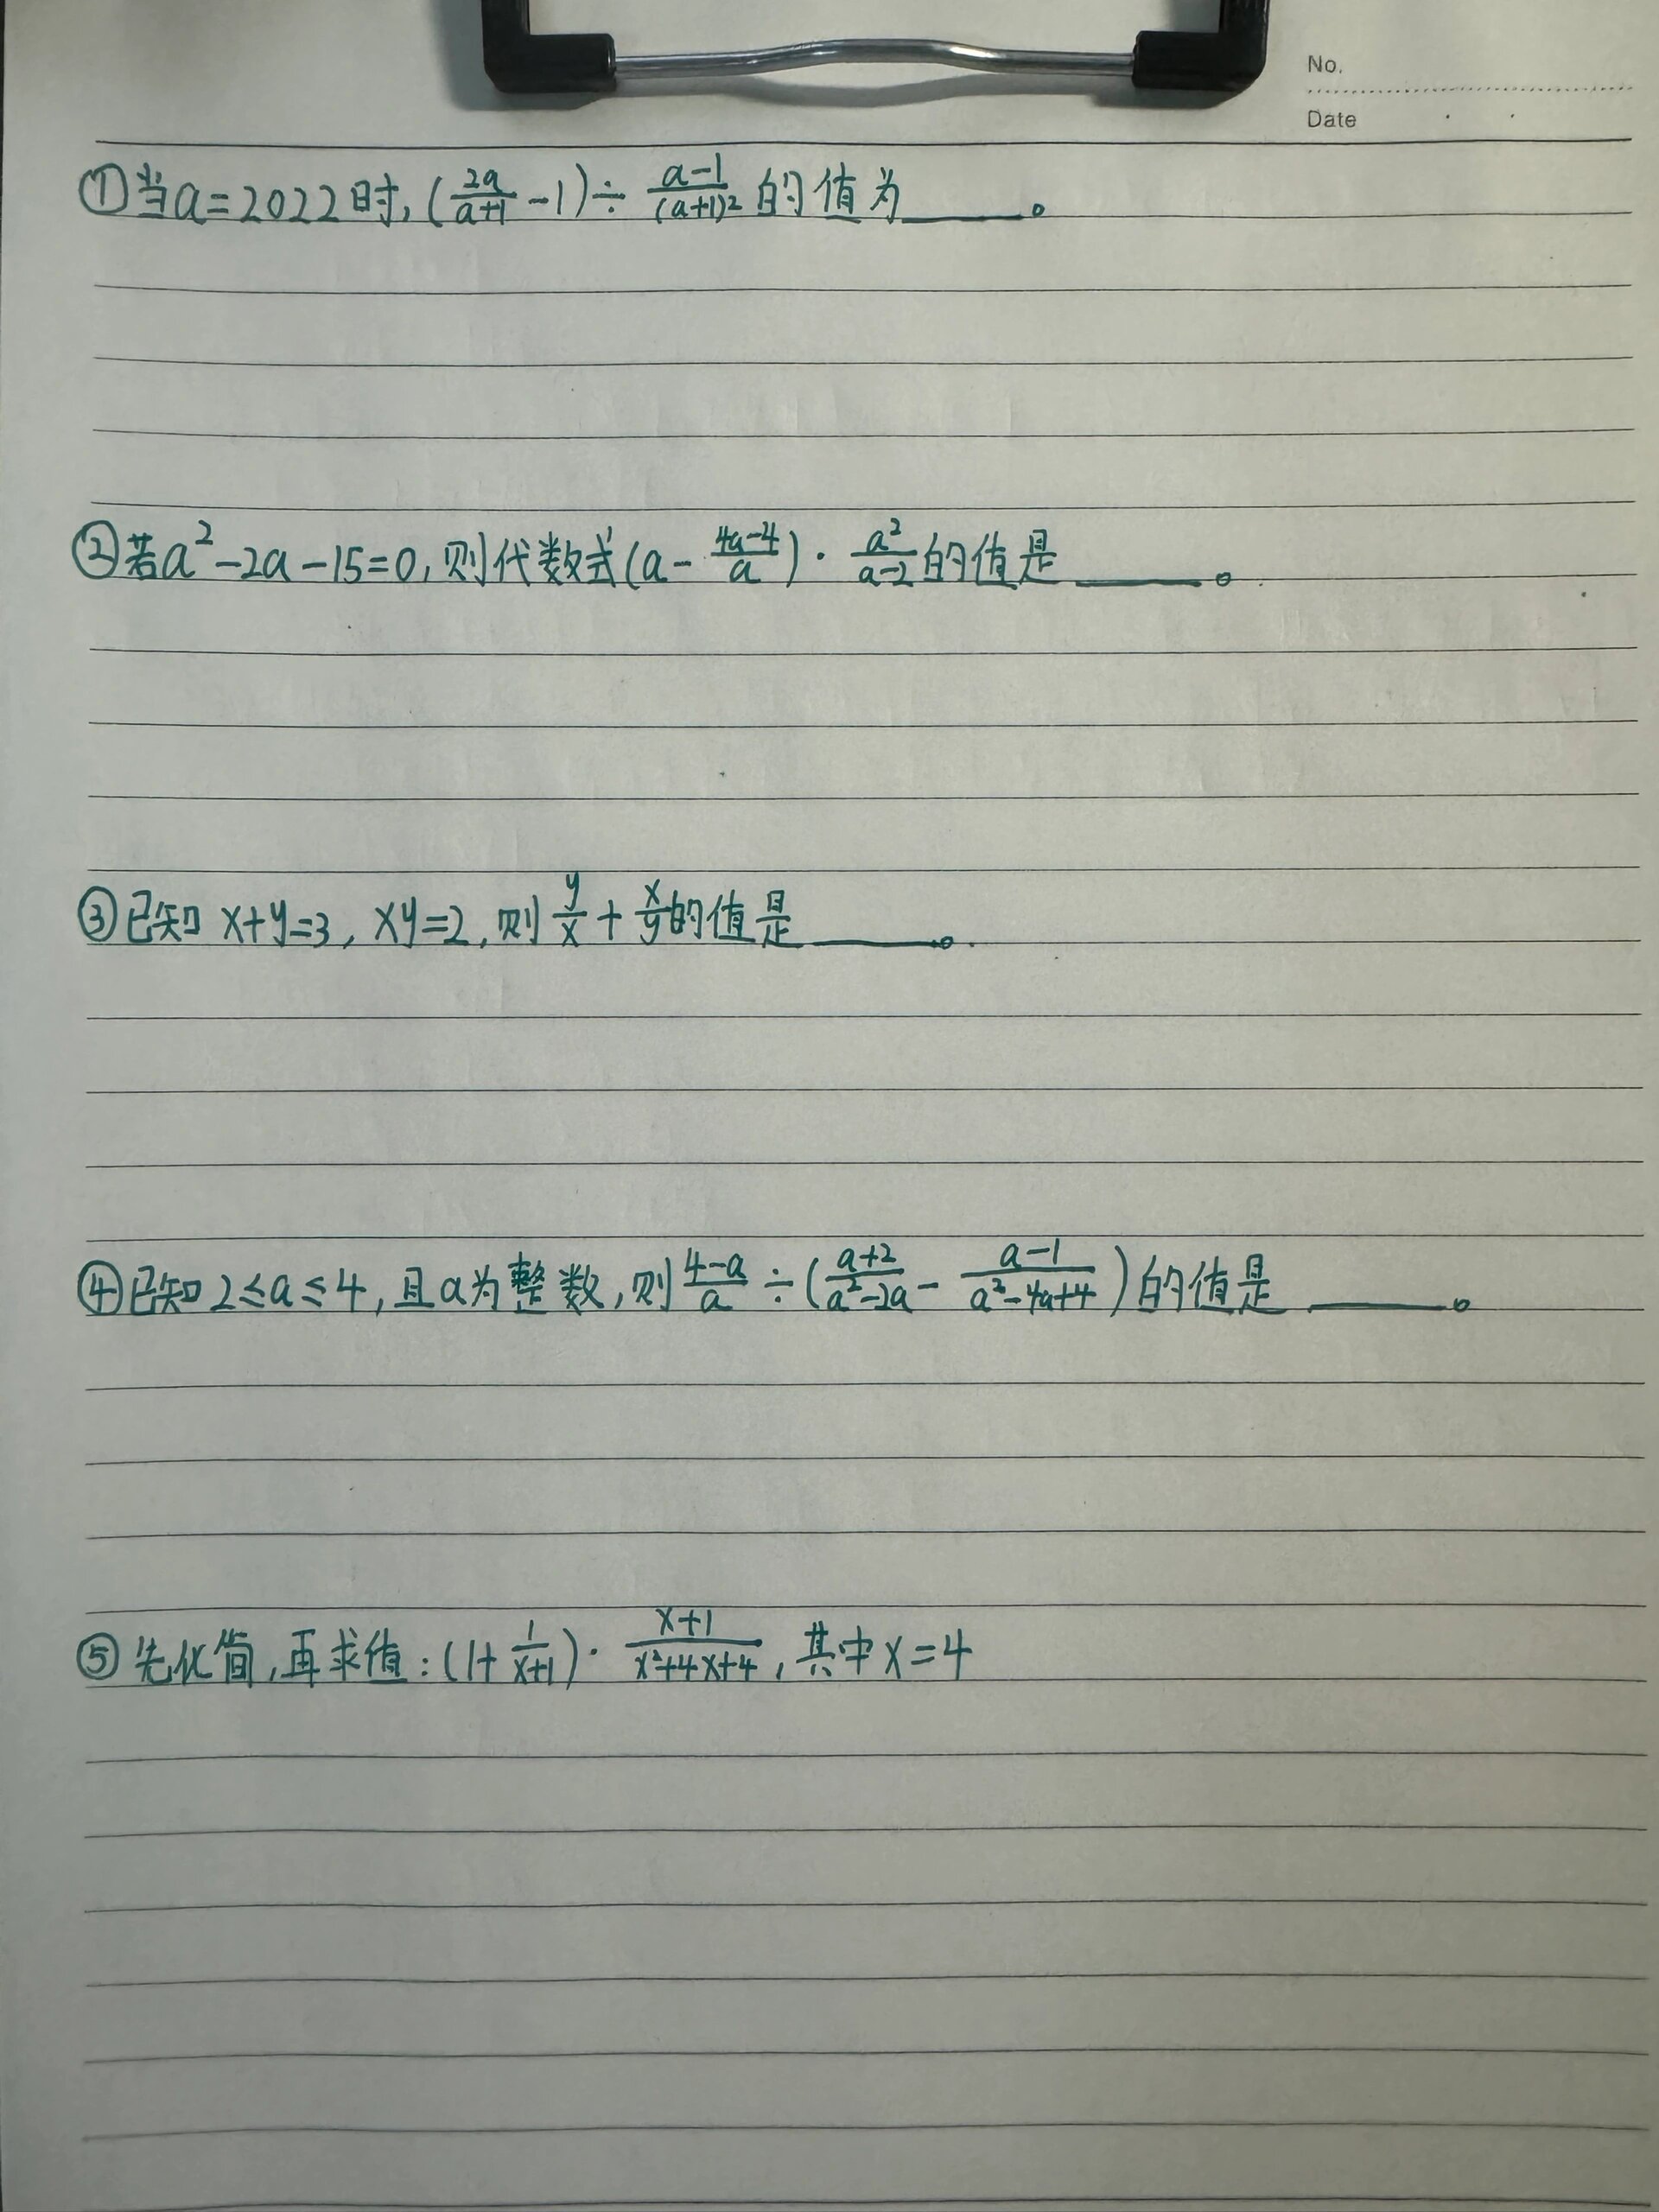 No.
Date
①当a=2022时,(2a/(a+1) -1)÷ (a-1)/(a+1)²的值为____。
②若a²-2a-15=0,则代数式(a- (4a-4)/a)· a²/(a-2)的值是____。
③已知x+y=3,xy=2,则y/x+x/y的值是____。
④已知2≤a≤4,且a为整数,则(4-a)/a÷((a+2)/(a²-2a)-(a-1)/(a²-4a+4))的值是____。
⑤先化简,再求值:(1+1/(x+1))·(x+1)/(x²+4x+4),其中x=4